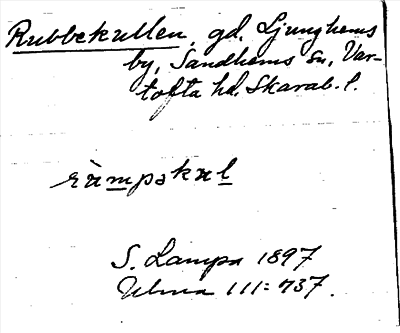 Rubbekullen, gd. Ljunghems
by, Sandhems sn, Var-
tofta hd. Skarab. l.
ràmpəkul
S. Lampa 1897
Ulma 111:737.